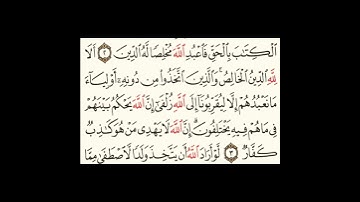 ٱلْكِتَٰبَ بِٱلْحَقِّ فَٱعْبُدِ ٱللَّهَ مُخْلِصًا لَّهُ ٱلدِّينَ ٢ أَلَا
لِلَّهِ ٱلدِّينُ ٱلْخَالِصُ وَٱلَّذِينَ ٱتَّخَذُوا۟ مِن دُونِهِۦٓ أَوْلِيَآءَ
مَا نَعْبُدُهُمْ إِلَّا لِيُقَرِّبُونَآ إِلَى ٱللَّهِ زُلْفَىٰٓ إِنَّ ٱللَّهَ يَحْكُمُ بَيْنَهُمْ
فِى مَا هُمْ فِيهِ يَخْتَلِفُونَ ۗ إِنَّ ٱللَّهَ لَا يَهْدِى مَنْ هُوَ كَٰذِبٌ
كَفَّارٌ ٣ لَّوْ أَرَادَ ٱللَّهُ أَن يَتَّخِذَ وَلَدًا لَّٱصْطَفَىٰ مِمَّا